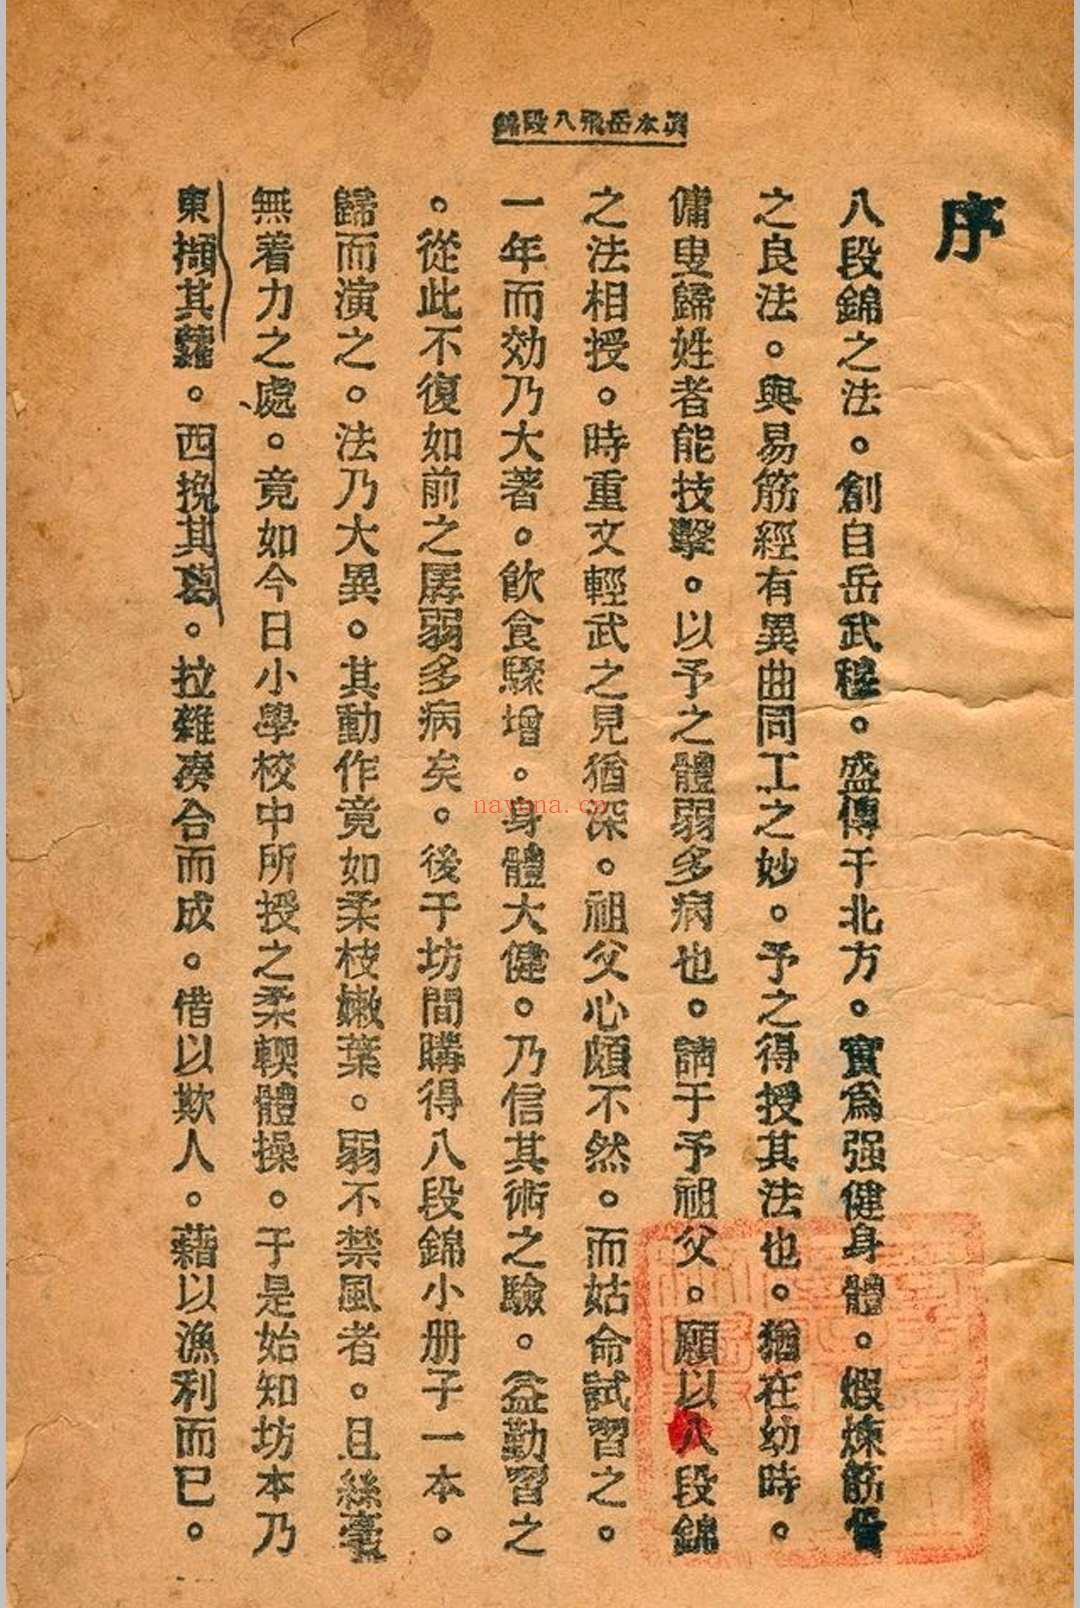 真本岳飛八段錦
序
八段錦之法。創自岳武穆。盛傳于北方。實爲强健身體。煅煉筋骨
之良法。與易筋經有異曲同工之妙。予之得授其法也。猶在幼時。
傭叟歸姓者能技擊。以予之體弱多病也。請于予祖父。願以八段錦
之法相授。時重文輕武之見猶深。祖父心頗不然。而姑命試習之。
一年而効乃大著。飲食驟增。身體大健。乃信其術之驗。益勤習之
。從此不復如前之孱弱多病矣。後于坊間購得八段錦小册子一本。
歸而演之。法乃大異。其動作竟如柔枝嫩葉。弱不禁風者。且絲毫
無着力之處。竟如今日小學校中所授之柔輭體操。于是始知坊本乃
東擷其蘿。西挽其葛。拉雜凑合而成。借以欺人。藉以漁利而已。
nayona.cn